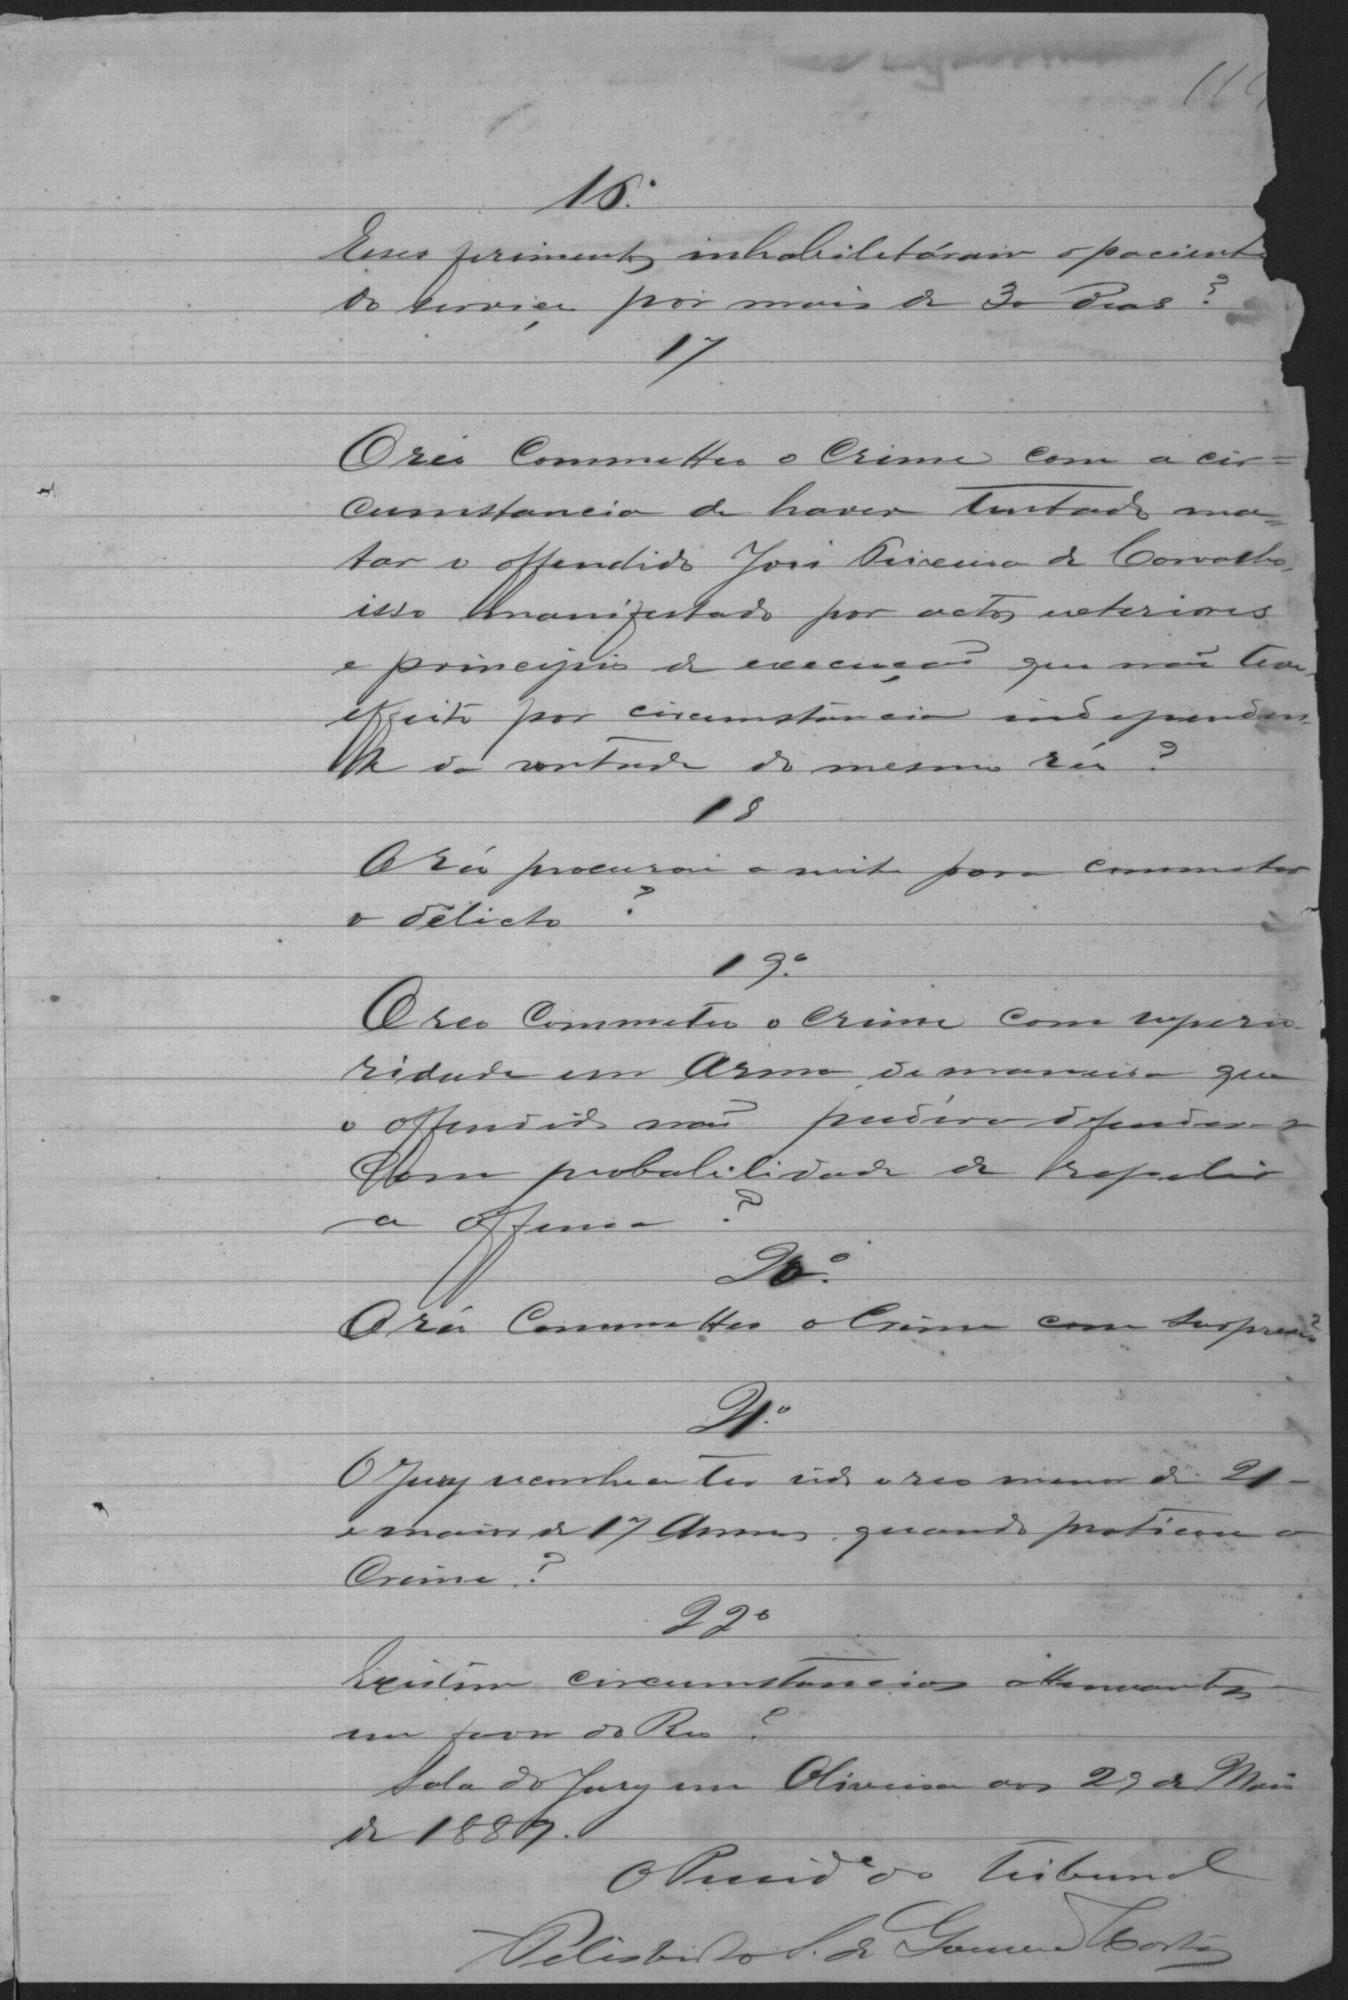 16.º
Esses ferimentos inhabilitárain o pacient
do serviço por mais de 30 dias?
17
O réo Commetteo o Crime com a cir=
cumstancia de haver tentado ma=
tar o offendido José Teixeira de Carvalho,
isso manifestado por actos exteriores
e principio de execução que não teve
effeito por circumstancia independen-
te da vontade do mesmo réo?
18
O réo procurou a noite para commetter
o delicto?
19.º
O reo Commeteo o Crime com superio-
ridade em Arma de maneira que
o offendido não pudéra defender-se
Com probabilidade de repelir
a offensa?
20.º
O réo Commetteo o Crime com surpresa?
21.º
O Jury reconhece ter sido o reo menor de 21
e maior de 17 Annos quando praticou o
Crime?
22º
Existem circumstancias attenuantes
em favor do Reo?
Sala do Jury em Oliveira aos 29 de Maio
de 1889.
O Presid.e do Tribunal
S. de Gouvea